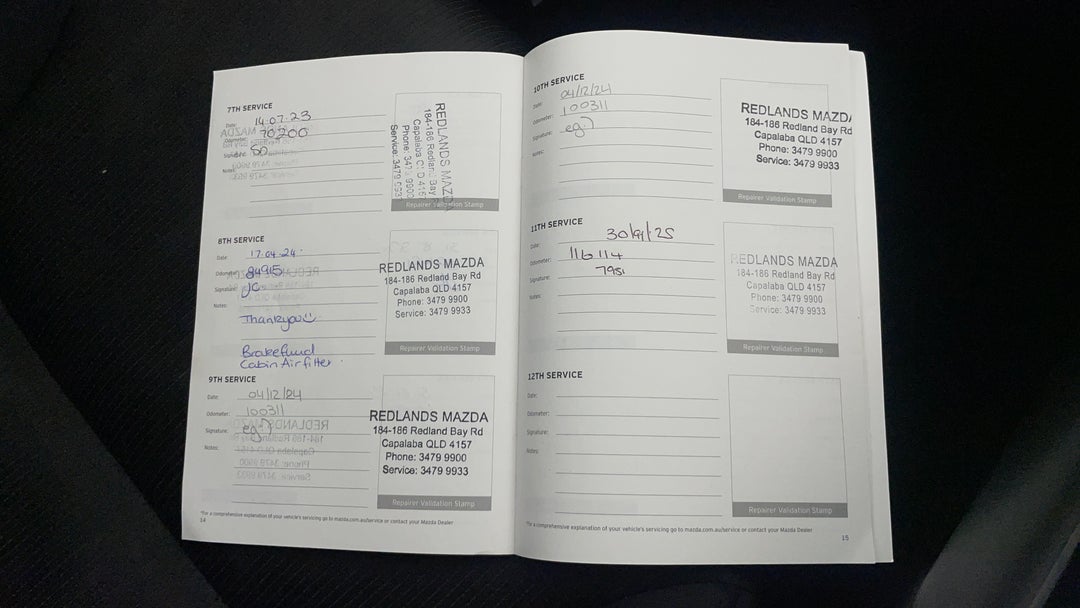 7TH SERVICE
Date: 14.07.23
Odometer: 70200
Signature:
Notes:
REDLANDS MAZDA
184-186 Redland Bay Rd
Capalaba QLD 4157
Phone: 3479 9900
Service: 3479 9933
Repairer Validation Stamp
8TH SERVICE
Date: 17.04.24.
Odometer: 84915
Signature: JC
Notes:
Thankyou☺
Brakefluid
Cabin Air filter.
REDLANDS MAZDA
184-186 Redland Bay Rd
Capalaba QLD 4157
Phone: 3479 9900
Service: 3479 9933
Repairer Validation Stamp
9TH SERVICE
Date: 04/12/24
Odometer: 100311
Signature:
Notes:
REDLANDS MAZDA
184-186 Redland Bay Rd
Capalaba QLD 4157
Phone: 3479 9900
Service: 3479 9933
Repairer Validation Stamp
*For a comprehensive explanation of your vehicle's servicing go to mazda.com.au/service or contact your Mazda Dealer
14
10TH SERVICE
Date: 04/12/24
Odometer: 100311
Signature:
Notes:
REDLANDS MAZDA
184-186 Redland Bay Rd
Capalaba QLD 4157
Phone: 3479 9900
Service: 3479 9933
Repairer Validation Stamp
11TH SERVICE
Date:
Odometer: 116114
Signature:
Notes:
REDLANDS MAZDA
184-186 Redland Bay Rd
Capalaba QLD 4157
Phone: 3479 9900
Service: 3479 9933
Repairer Validation Stamp
12TH SERVICE
Date:
Odometer:
Signature:
Notes:
Repairer Validation Stamp
*For a comprehensive explanation of your vehicle's servicing go to mazda.com.au/service or contact your Mazda Dealer
15